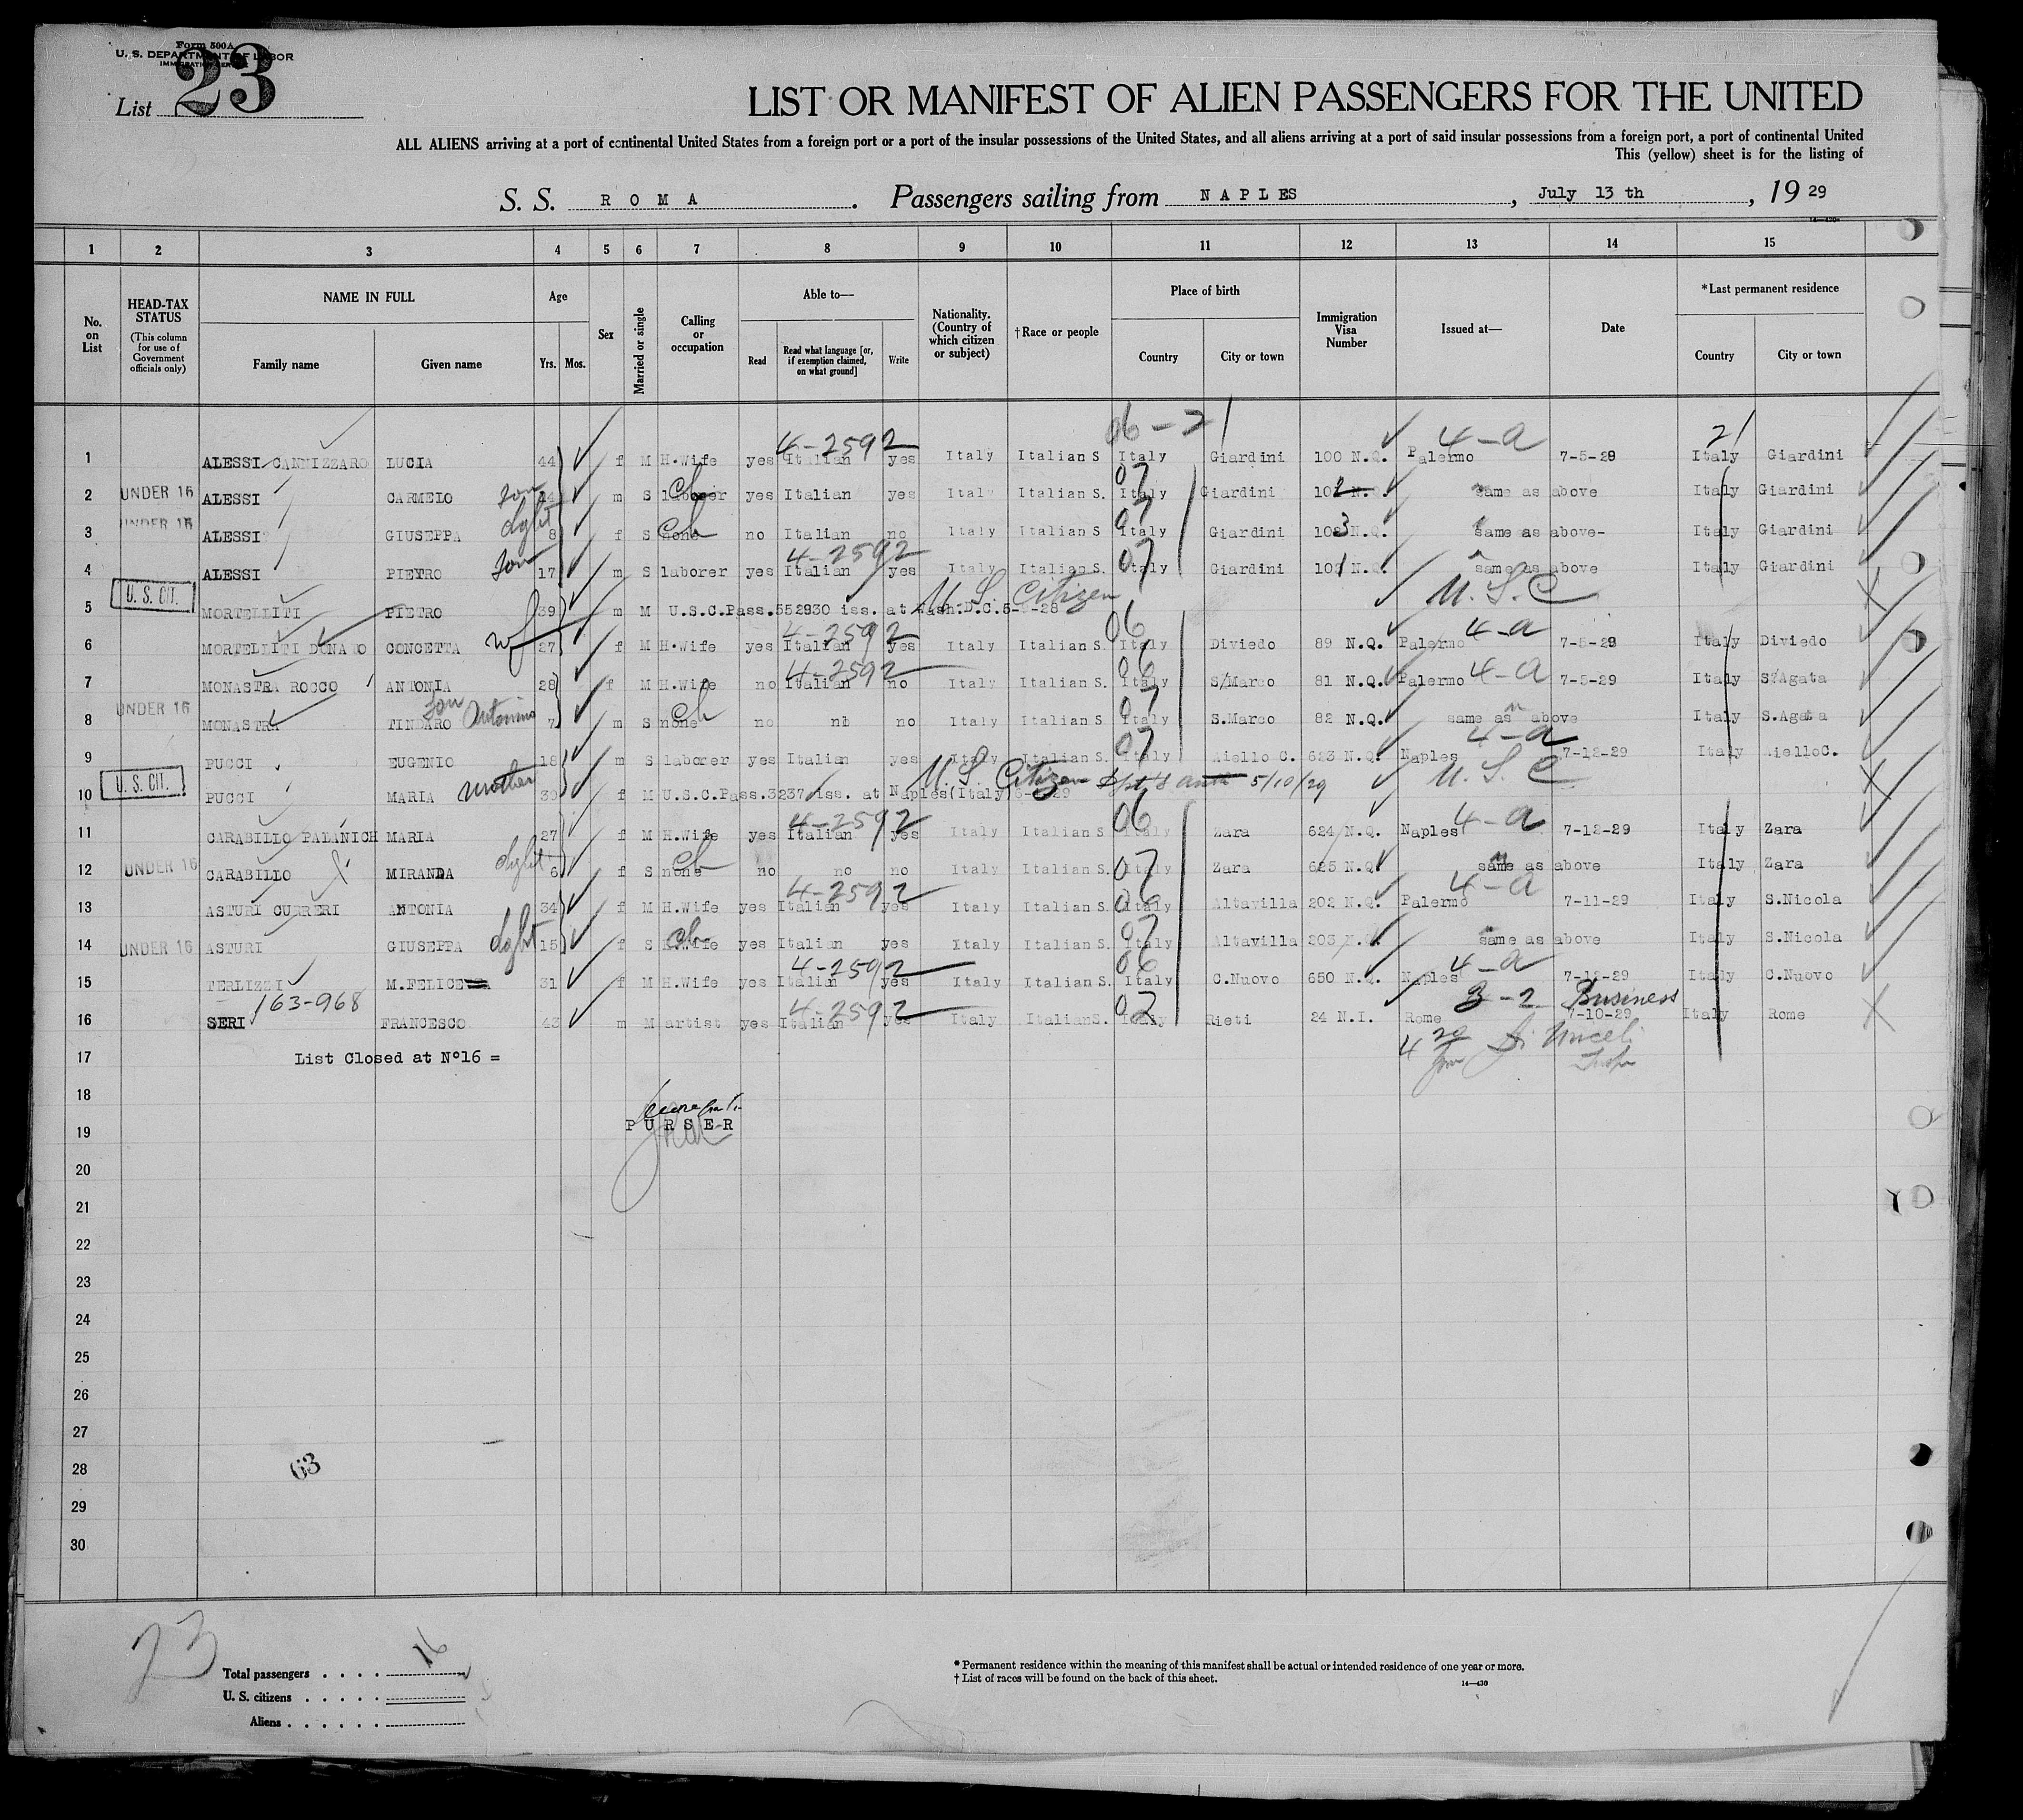 Form 500A
U. S. DEPARTMENT OF LABOR
IMMIGRATION SERVICE
List 23
LIST OR MANIFEST OF ALIEN PASSENGERS FOR THE UNITED
ALL ALIENS arriving at a port of continental United States from a foreign port or a port of the insular possessions of the United States, and all aliens arriving at a port of said insular possessions from a foreign port, a port of continental United
This (yellow) sheet is for the listing of
S. S. ROMA. Passengers sailing from NAPLES, July 13 th, 1929
1 2 3 4 5 6 7 8 9 10 11 12 13 14 15
No. on List
HEAD-TAX STATUS (This column for use of Government officials only)
NAME IN FULL Family name Given name
Age Yrs. Mos.
Sex
Married or single
Calling or occupation
Able to— Read Read what language [or, if exemption claimed, on what ground] Write
Nationality. (Country of which citizen or subject)
†Race or people
Place of birth Country City or town
Immigration Visa Number
Issued at—
Date
*Last permanent residence Country City or town
06-21 4-2592 4-a 21
1 ALESSI CANNIZZARO LUCIA 44 f M H.Wife yes Italian yes Italy Italian S Italy Giardini 100 N.Q. Palermo 7-5-29 Italy Giardini
2 UNDER 16 ALESSI CARMELO son 14 m S laborer ch yes Italian yes Italy Italian S. 07 Italy Giardini 102 N.Q. same as above Italy Giardini
3 UNDER 16 ALESSI GIUSEPPA dght 8 f S none ch no Italian no Italy Italian S 07 Italy Giardini 103 N.Q. same as above- Italy Giardini
4 ALESSI PIETRO son 17 m S laborer yes Italian 4-2592 yes Italy Italian S. 07 Italy Giardini 101 N.Q. same as above Italy Giardini
5 U. S. CIT. MORTELLITI PIETRO 39 m M U.S.C.Pass.552930 iss. at Wash.D.C.5- -28 U.S. Citizen U.S.C
6 MORTELLITI DONATO CONCETTA wf 27 f M H.Wife yes Italian 4-2592 yes Italy Italian S 06 Italy Diviedo 89 N.Q. Palermo 4-a 7-5-29 Italy Diviedo
7 MONASTRA ROCCO ANTONIA 28 f M H.Wife no Italian 4-2592 no Italy Italian S. 06 Italy S/Marco 81 N.Q. Palermo 4-a 7-5-29 Italy S/Agata
8 UNDER 16 MONASTRA TINDARO son Antonino 7 m S none ch no no no Italy Italian S 07 Italy S.Marco 82 N.Q. same as above Italy S.Agata
9 PUCCI EUGENIO 18 m S laborer yes Italian yes Italy Italian S. 07 Italy Aiello C. 623 N.Q. Naples 4-a 7-12-29 Italy AielloC.
10 U. S. CIT. PUCCI MARIA mother 39 f M U.S.C.Pass.3237 iss. at Naples(Italy) U.S. Citizen 5/10/29 U.S.C
11 CARABILLO PALANICH MARIA 27 f M H.Wife yes Italian 4-2592 yes Italy Italian S 06 Italy Zara 624 N.Q. Naples 4-a 7-12-29 Italy Zara
12 UNDER 16 CARABILLO MIRANDA dght 6 f S none ch no no no Italy Italian S. 07 Italy Zara 625 N.Q. same as above Italy Zara
13 ASTURI CURRERI ANTONIA 34 f M H.Wife yes Italian 4-2592 yes Italy Italian S. 06 Italy Altavilla 202 N.Q. Palermo 4-a 7-11-29 Italy S.Nicola
14 UNDER 16 ASTURI GIUSEPPA dght 15 f S H.Wife ch yes Italian yes Italy Italian S. 07 Italy Altavilla 203 N.Q. same as above Italy S.Nicola
15 TERLIZZI M.FELICE 31 f M H.Wife yes Italian 4-2592 yes Italy Italian S. 06 Italy C.Nuovo 650 N.Q. Naples 4-a 7-12-29 Italy C.Nuovo
163-968 3-2 Business
16 SERI FRANCESCO 43 m M artist yes Italian 4-2592 yes Italy ItalianS. 07 Italy Rieti 24 N.I. Rome 7-10-29 Italy Rome
17 List Closed at Nº16 =
18
PURSER
19
20
21
22
23
24
25
26
27
28 63
29
30
23
Total passengers . . . . 16
U. S. citizens . . . . .
Aliens . . . . . .
* Permanent residence within the meaning of this manifest shall be actual or intended residence of one year or more.
† List of races will be found on the back of this sheet.
14—430